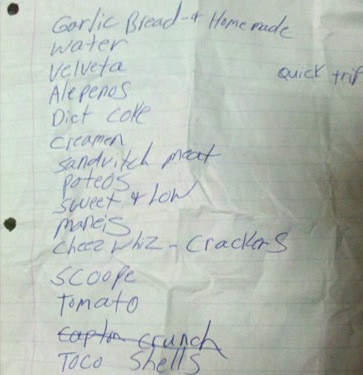 Garlic Bread - & Homemade
Water
Velveta
quick trip
Alepenos
Diet coke
creamen
sandvitch meat
Poteos
sweet & Low
maneis
cheez whiz - crackers
scoope
Tomato
capton crunch
Toco shells